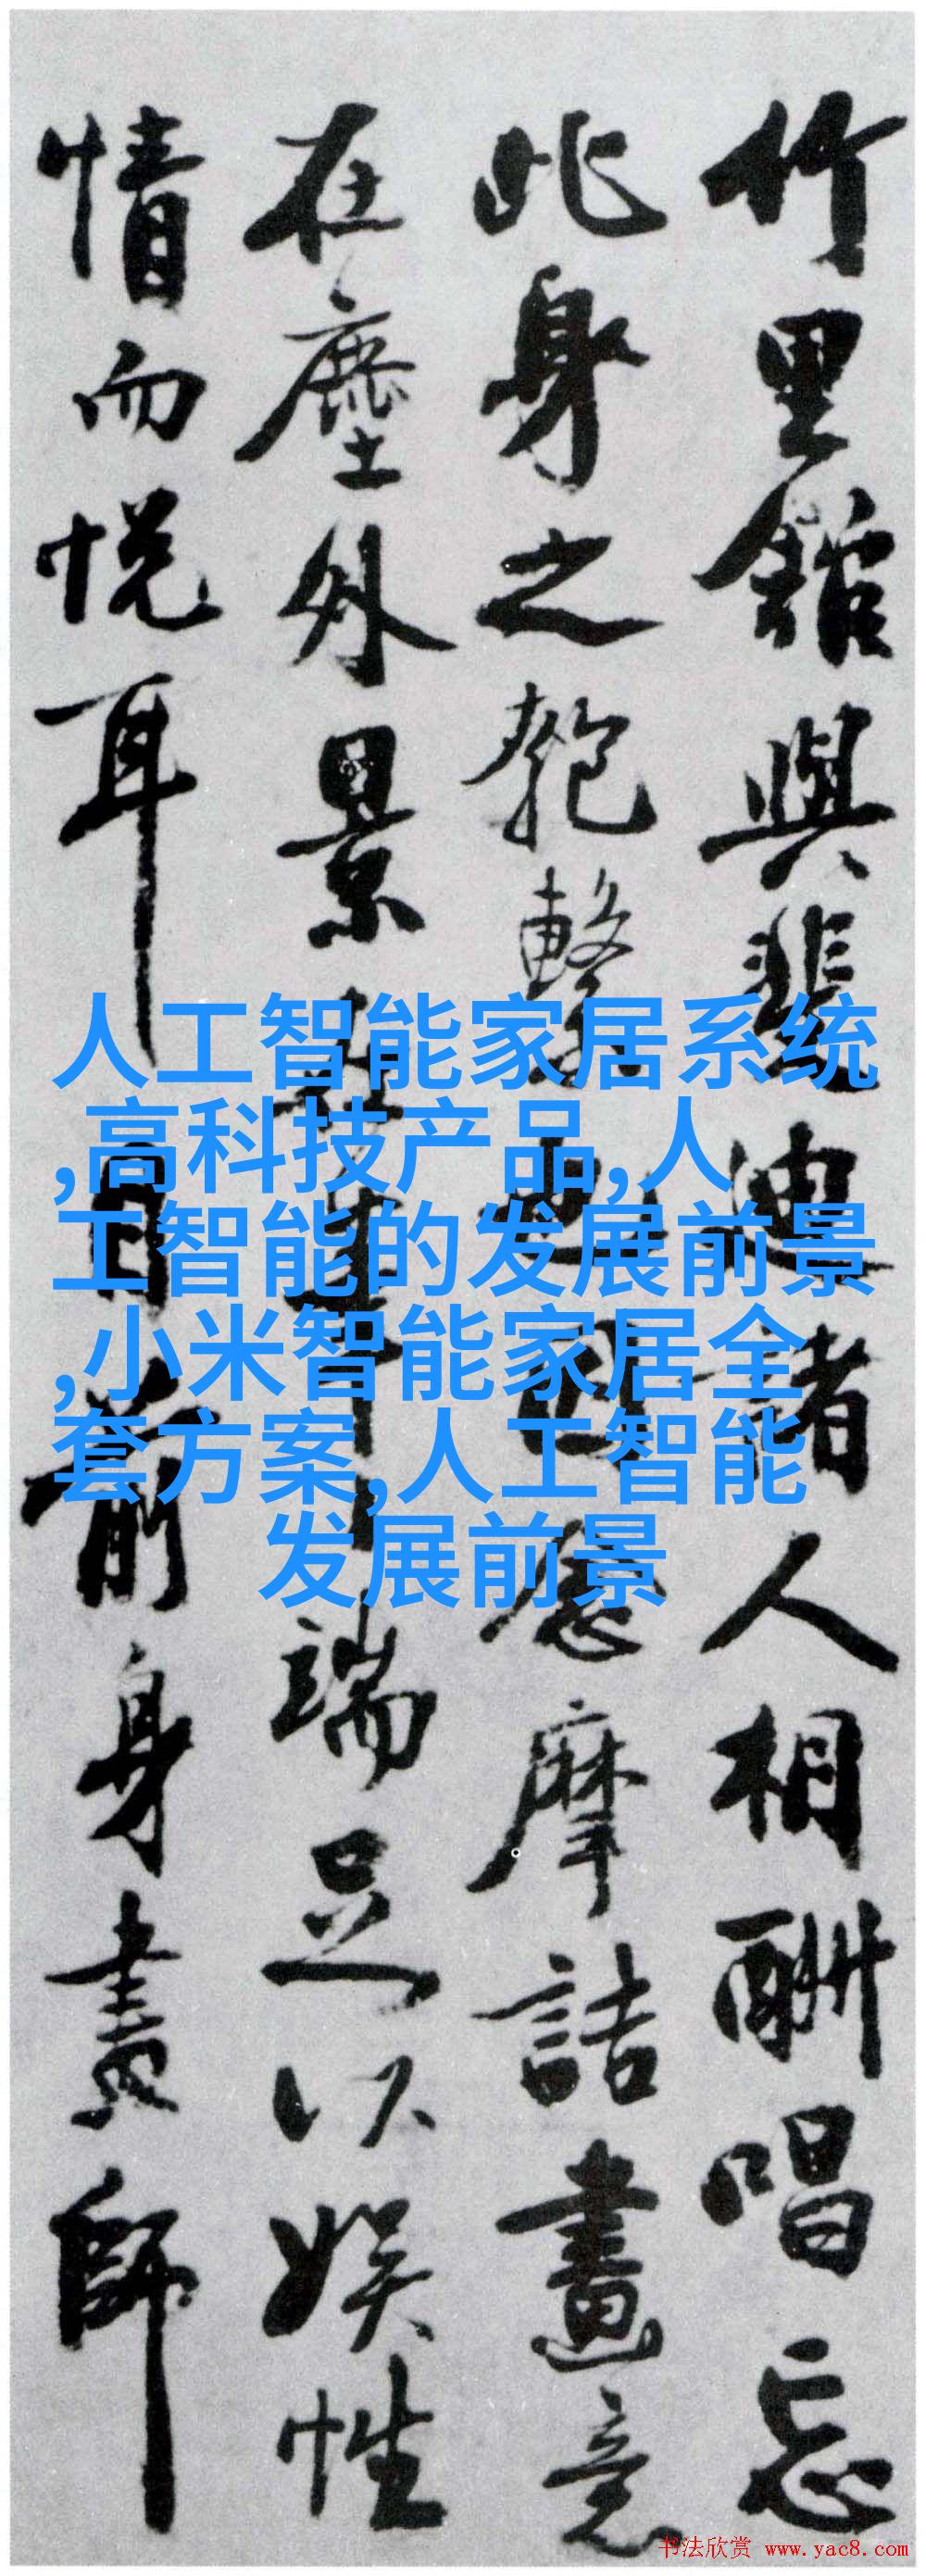 竹里館與裴迪諸人相酬唱忘
此身之匏繫也因摩詰畫意
在塵外景在筆端足以娛性
情而悅耳目前身畫師
人工智能家居系统
,高科技产品,人
工智能的发展前景
,小米智能家居全
套方案,人工智能
发展前景
书法欣赏 www.yac8.com